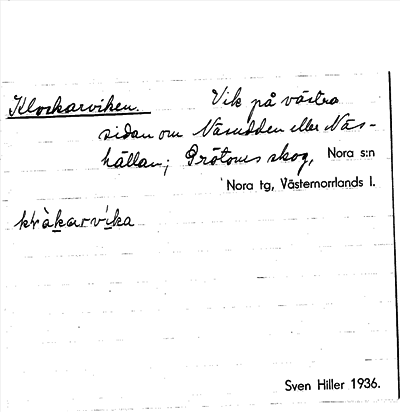 Klockarviken. Vik på västra
sidan om Näsudden eller Näs-
hällan; Prästons skog, Nora s:n
Nora tg, Västernorrlands l.
klràkarvika
Sven Hiller 1936.